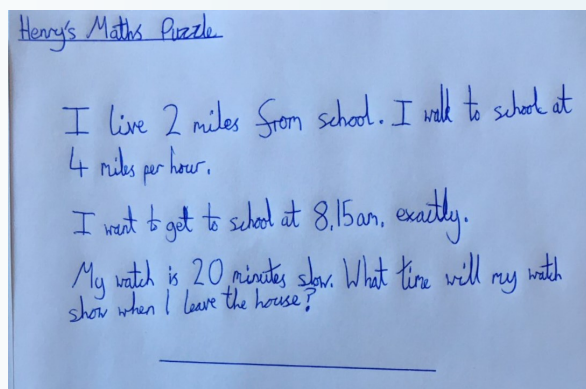 Henry's Maths Puzzle
I live 2 miles from school. I walk to school at
4 miles per hour.
I want to get to school at 8,15am, exactly.
My watch is 20 minutes slow. What time will my watch
show when I leave the house?